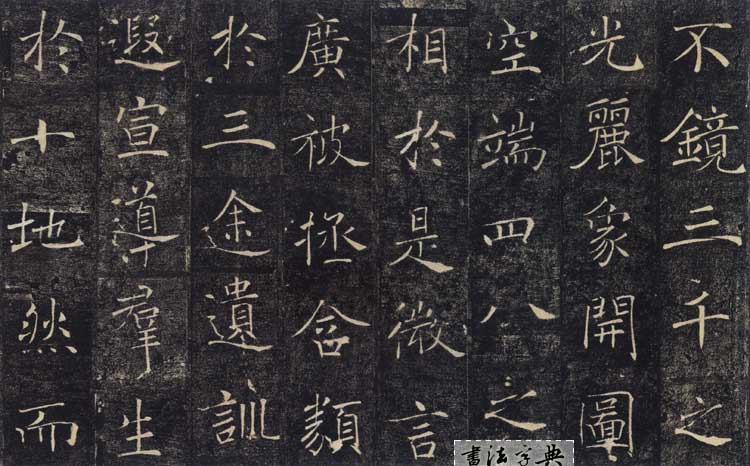 不鏡三千之
光麗象開圖
空端四八之
相於是微言
廣被拯含類
於三途遺訓
遐宣導群生
於十地然而
書法字典